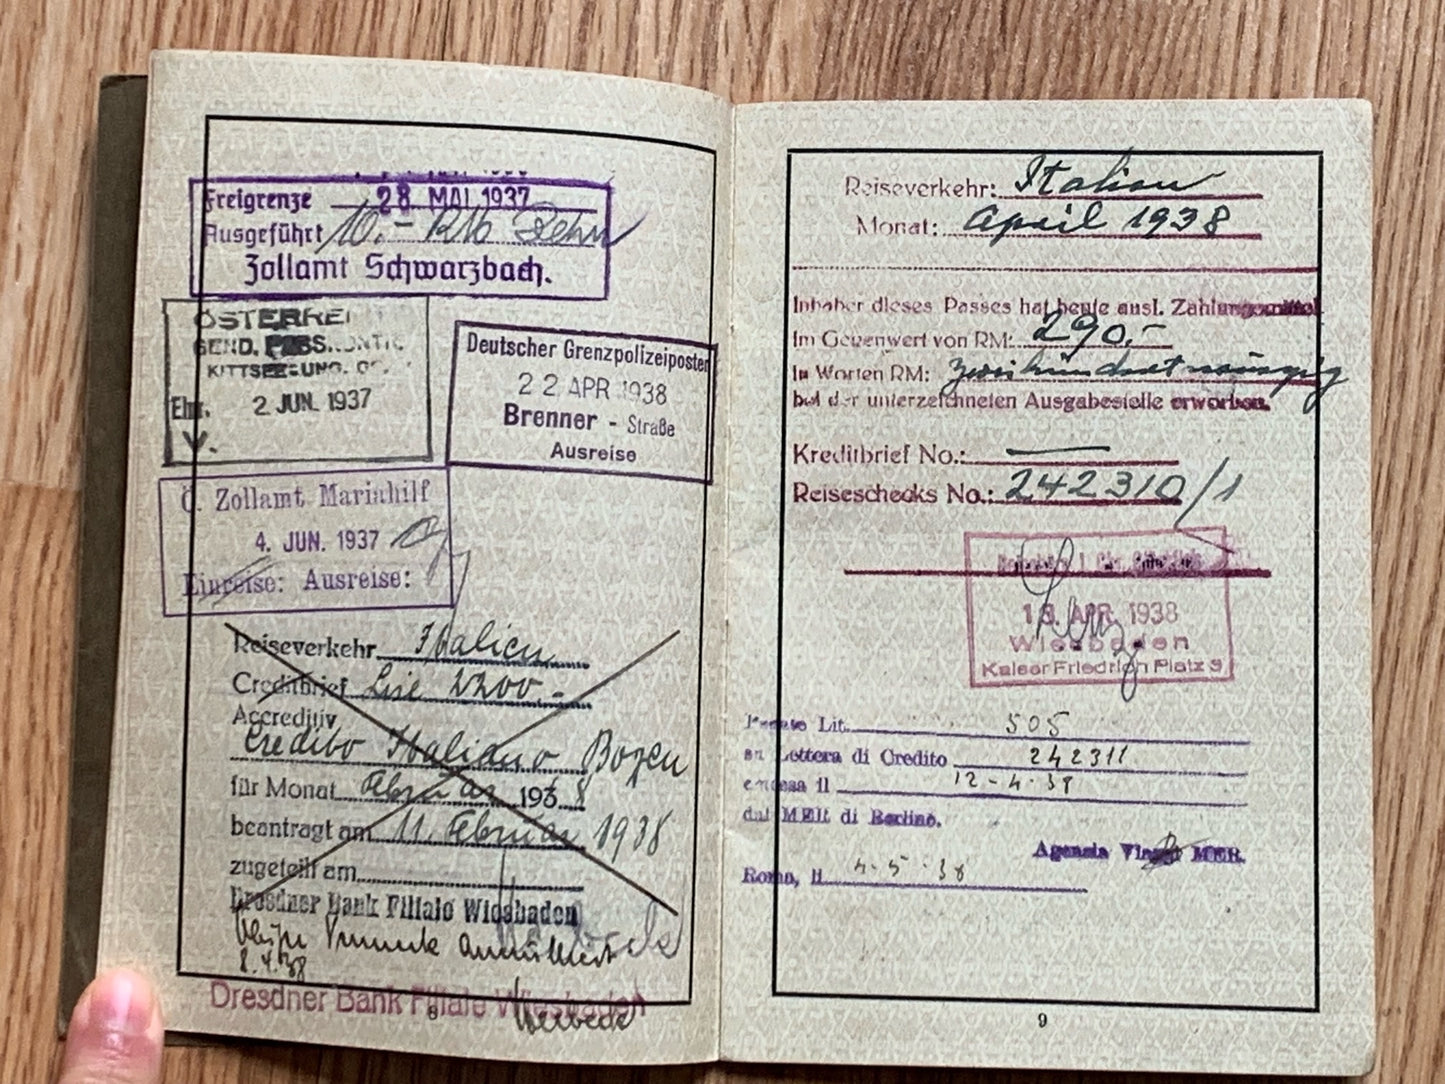 Freigrenze 28. MAI 1937
Ausgeführt 10.- RM
Zollamt Schwarzbach.
ÖSTERREI
GEND.
KITTSEE
2. JUN. 1937
Deutscher Grenzpolizeiposten
22 APR 1938
Brenner - Straße
Ausreise
Ö. Zollamt Mariahilf
4. JUN. 1937
Einreise: Ausreise:
Reiseverkehr Italien
Creditbrief Lire 2200.-
Accreditiv
Credito Italiano Bozen
für Monat Februar 1938
beantragt am 11. Februar 1938
zugeteilt am
Dresdner Bank Filiale Wiesbaden
8.4.38
Dresdner Bank Filiale Wiesbaden
8
Reiseverkehr: Italien
Monat: April 1938
Inhaber dieses Passes hat heute ausl. Zahlungsmittel
im Gegenwert von RM: 290.-
in Worten RM: zweihundertneunzig
bei der unterzeichneten Ausgabestelle erworben.
Kreditbrief No.: —
Reiseschecks No.: 242310/1
13. APR. 1938
Wiesbaden
Kaiser Friedrich Platz 3
Pagato Lit. 505
su Lettera di Credito 242311
emessa il 12-4-38
dal MER di Berlino.
Agenzia Viaggi MER.
Roma, il 4-5-38
9